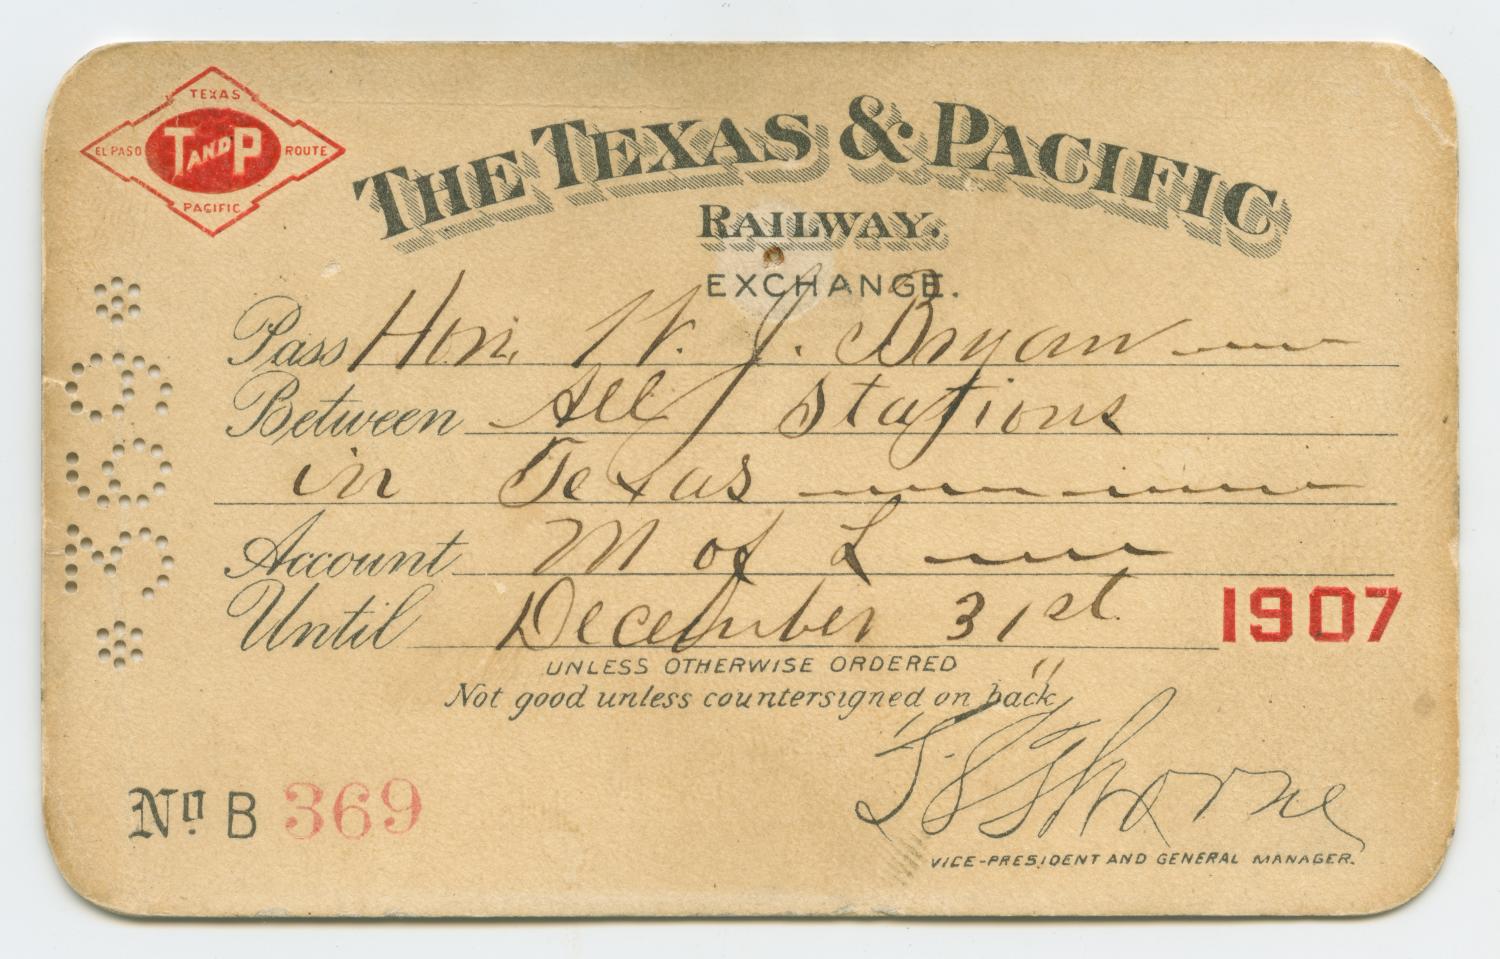 TEXAS
EL PASO T AND P ROUTE
PACIFIC
THE TEXAS & PACIFIC
RAILWAY.
EXCHANGE.
Pass Hon. W. J. Bryan
Between All Stations
in Texas
Account M of L
Until December 31st 1907
UNLESS OTHERWISE ORDERED
Not good unless countersigned on back
L S Thorne
VICE-PRESIDENT AND GENERAL MANAGER.
No. B 369
*369*